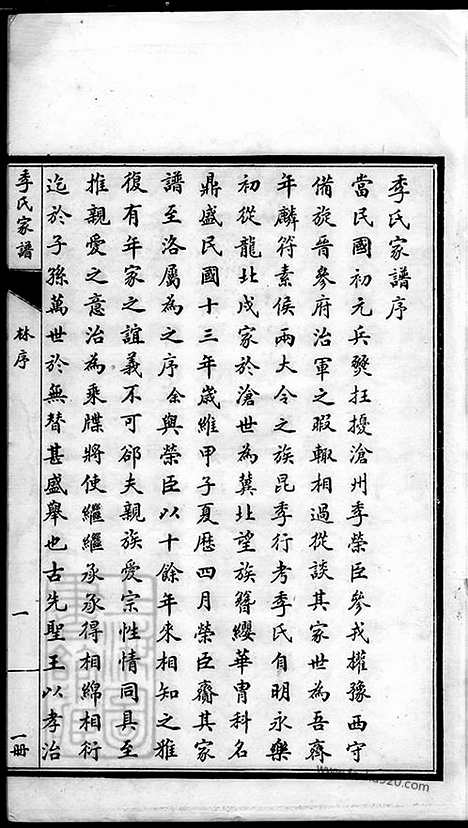 季氏家譜序
當民國初元兵燹抂擾滄州季榮臣參戎擢豫西守
備旋晉參府治軍之暇輙相過從談其家世為吾齊
年麟符素侯兩大令之族昆季行考季氏自明永樂
初從龍北戍家於滄世為冀北望族簪纓華冑科名
鼎盛民國十三年歲維甲子夏歷四月榮臣齎其家
譜至洛屬為之序余與榮臣以十餘年來相知之雅
復有年家之誼義不可郤夫親族愛宗性情同具至
推親愛之意治為乘牒將使繼繼承承得相綿相衍
迄於子孫萬世於無替甚盛舉也古先聖王以孝治
季氏家譜
林序
一
一冊